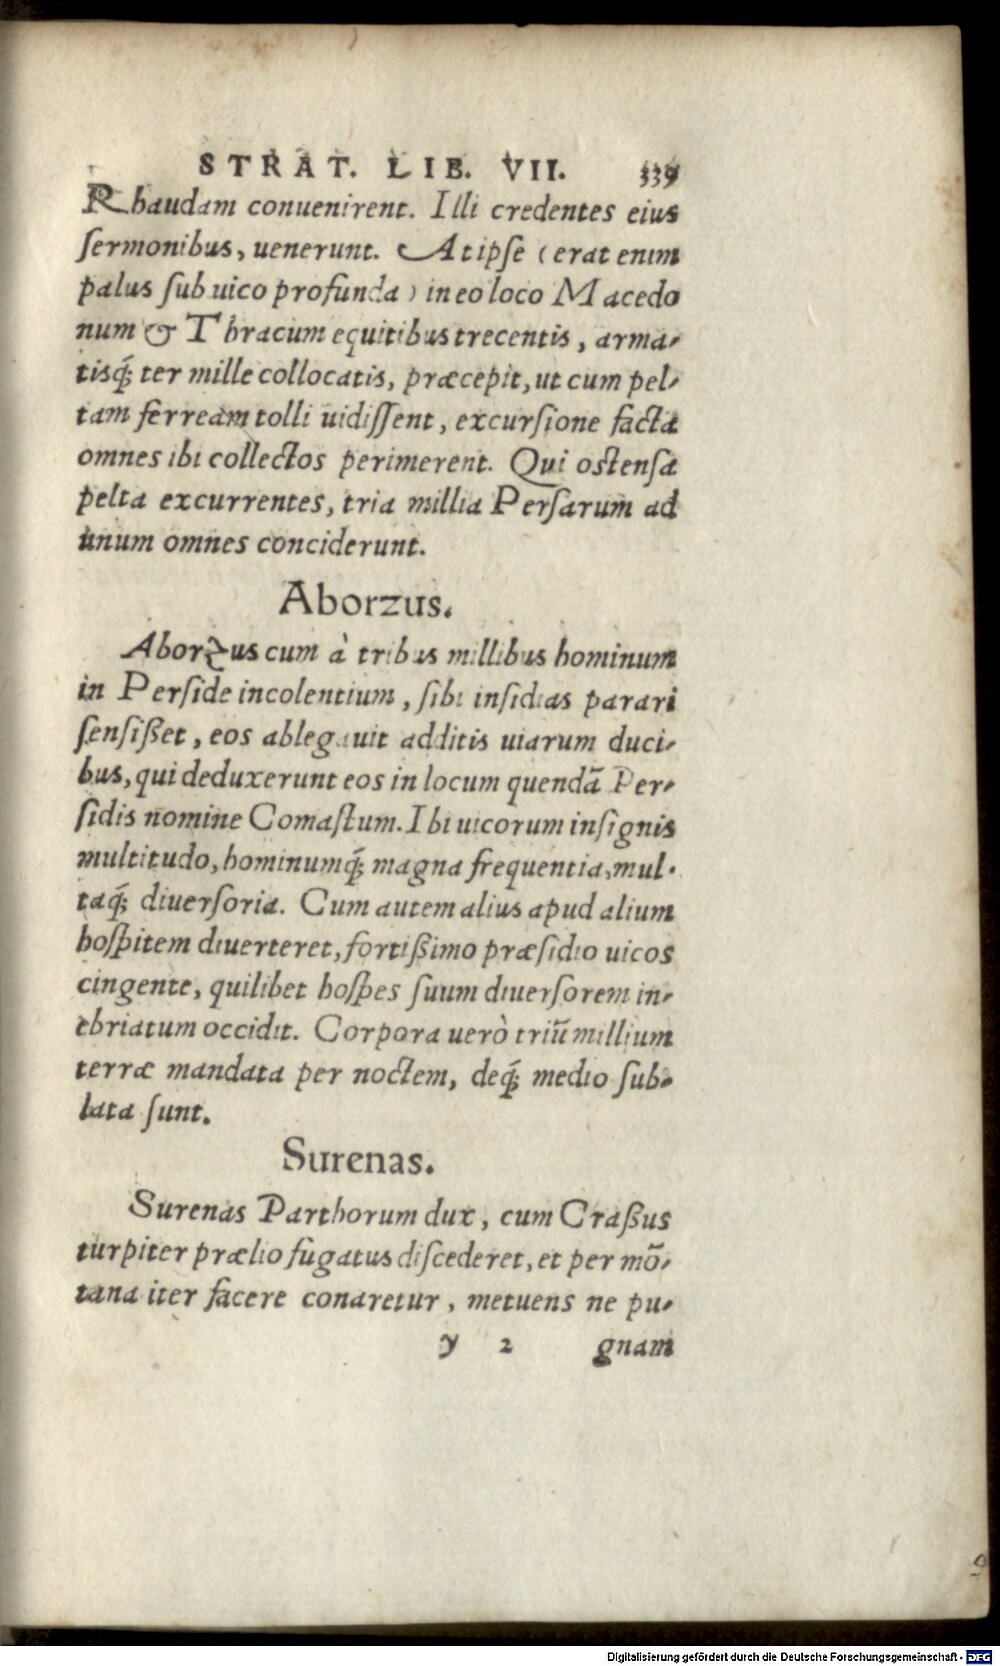 STRAT. LIB. VII. 339
Rhaudam conuenirent. Illi credentes eius
sermonibus, uenerunt. At ipse (erat enim
palus sub uico profunda) in eo loco Macedo
num & Thracum equitibus trecentis, arma-
tisq́; ter mille collocatis, præcepit, ut cum pel-
tam ferream tolli uidissent, excursione facta
omnes ibi collectos perimerent. Qui ostensa
pelta excurrentes, tria millia Persarum ad
unum omnes conciderunt.
Aborzus.
Aborzus cum à tribus millibus hominum
in Perside incolentium, sibi insidias parari
sensißet, eos ablegauit additis uiarum duci-
bus, qui deduxerunt eos in locum quendã Per-
sidis nomine Comastum. Ibi uicorum insignis
multitudo, hominumq́; magna frequentia, mul-
taq́; diuersoria. Cum autem alius apud alium
hospitem diuerteret, fortißimo præsidio uicos
cingente, quilibet hospes suum diuersorem in-
ebriatum occidit. Corpora uerò triũ millium
terræ mandata per noctem, deq́; medio sub-
lata sunt.
Surenas.
Surenas Parthorum dux, cum Craßus
turpiter prælio fugatus discederet, et per mõ-
tana iter facere conaretur, metuens ne pu-
y 2 gnam
Digitalisierung gefördert durch die Deutsche Forschungsgemeinschaft - DFG